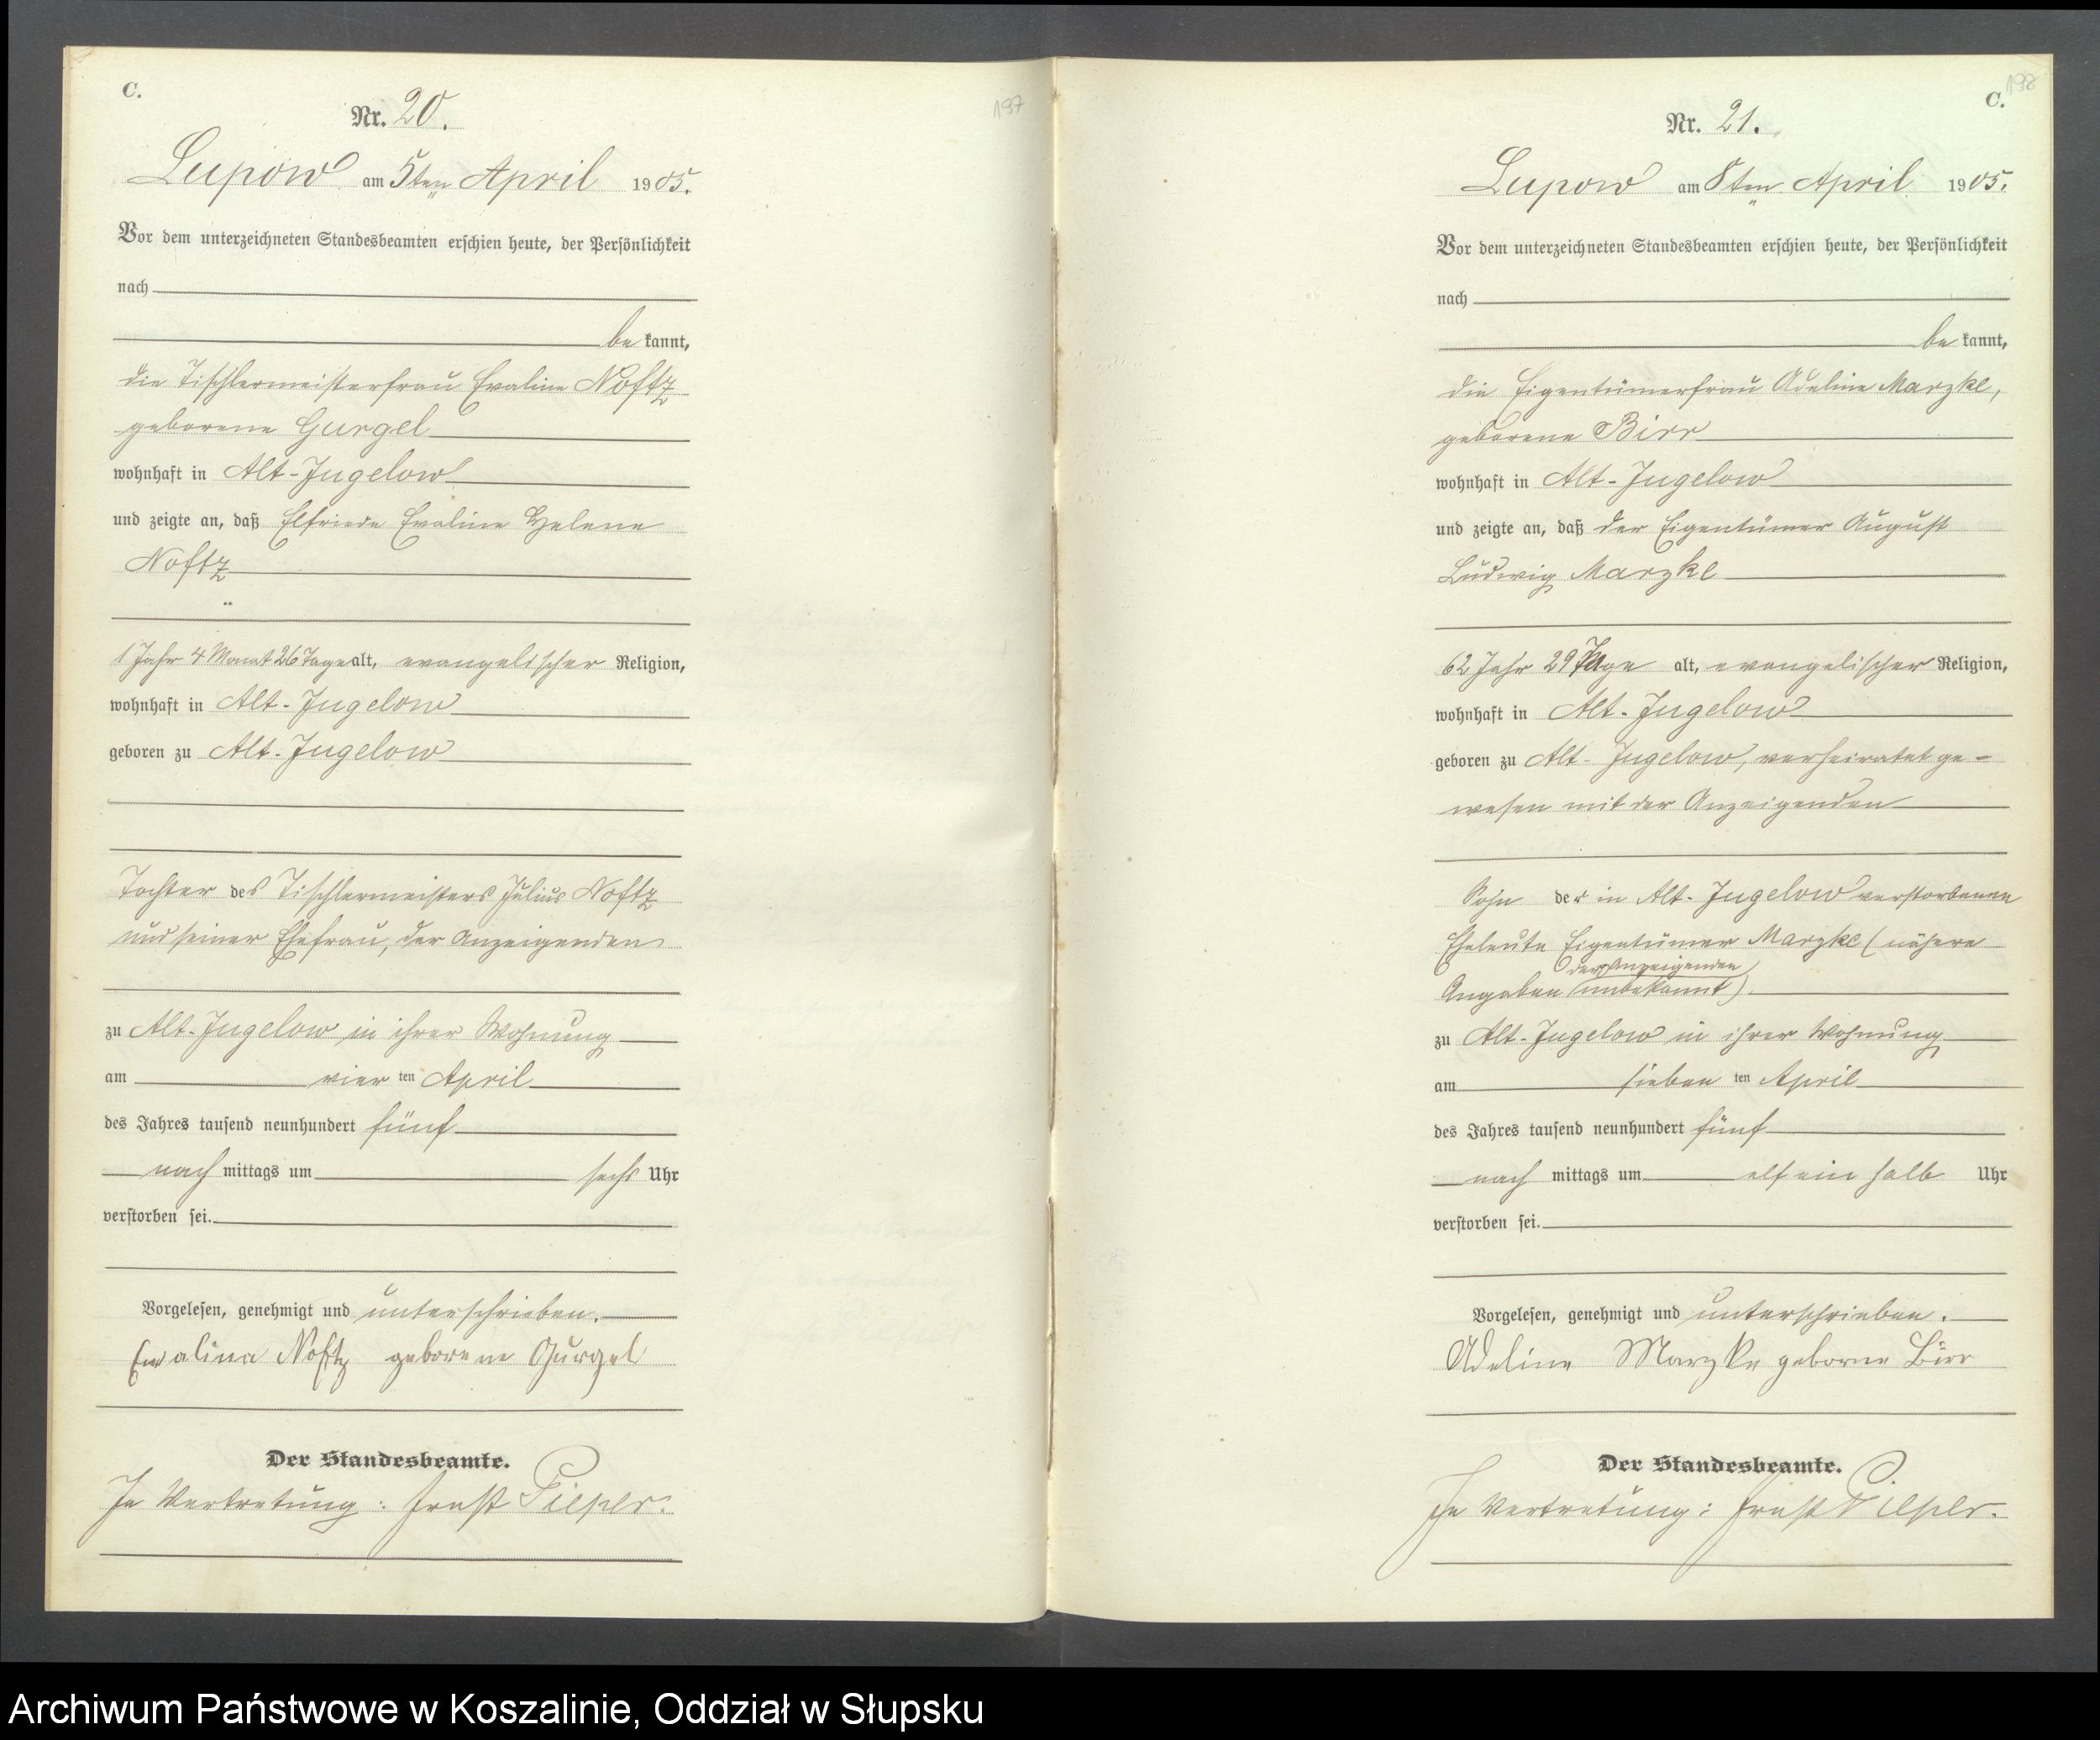 C.
197
Nr. 20.
Lupow am 5ten April 1905.
Vor dem unterzeichneten Standesbeamten erschien heute, der Persönlichkeit
nach
bekannt,
die Tischlermeisterfrau Evaline Noftz
geborene Gurgel
wohnhaft in Alt-Jugelow
und zeigte an, daß Elfriede Evaline Helene
Noftz
1 Jahr 4 Monat 26 Tage alt, evangelischer Religion,
wohnhaft in Alt-Jugelow
geboren zu Alt-Jugelow
Tochter des Tischlermeisters Julius Noftz
und seiner Ehefrau, der Anzeigenden
zu Alt-Jugelow in ihrer Wohnung
am vier ten April
des Jahres tausend neunhundert fünf
nach mittags um sechs Uhr
verstorben sei.
Vorgelesen, genehmigt und unterschrieben.
Ewalina Noftz geborene Gurgel
Der Standesbeamte.
In Vertretung: Ernst Pieper.
198
C.
Nr. 21.
Lupow am 8ten April 1905.
Vor dem unterzeichneten Standesbeamten erschien heute, der Persönlichkeit
nach
bekannt,
die Eigentümerfrau Adeline Marzke,
geborene Birr
wohnhaft in Alt-Jugelow
und zeigte an, daß der Eigentümer August
Ludwig Marzke
62 Jahr 29 Tage alt, evangelischer Religion,
wohnhaft in Alt-Jugelow
geboren zu Alt-Jugelow, verheiratet ge-
wesen mit der Anzeigenden
Sohn der in Alt-Jugelow verstorbenen
Eheleute Eigentümer Marzke (nähere
der Anzeigenden
Angaben unbekannt).
zu Alt-Jugelow in ihrer Wohnung
am sieben ten April
des Jahres tausend neunhundert fünf
nach mittags um elf ein halb Uhr
verstorben sei.
Vorgelesen, genehmigt und unterschrieben.
Adeline Marzke geborne Birr
Der Standesbeamte.
In Vertretung: Ernst Pieper.
Archiwum Państwowe w Koszalinie, Oddział w Słupsku